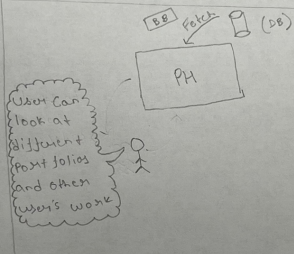 BB
Fetch
(DB)
PH
User can
look at
different
Portfolios
and other
user's work